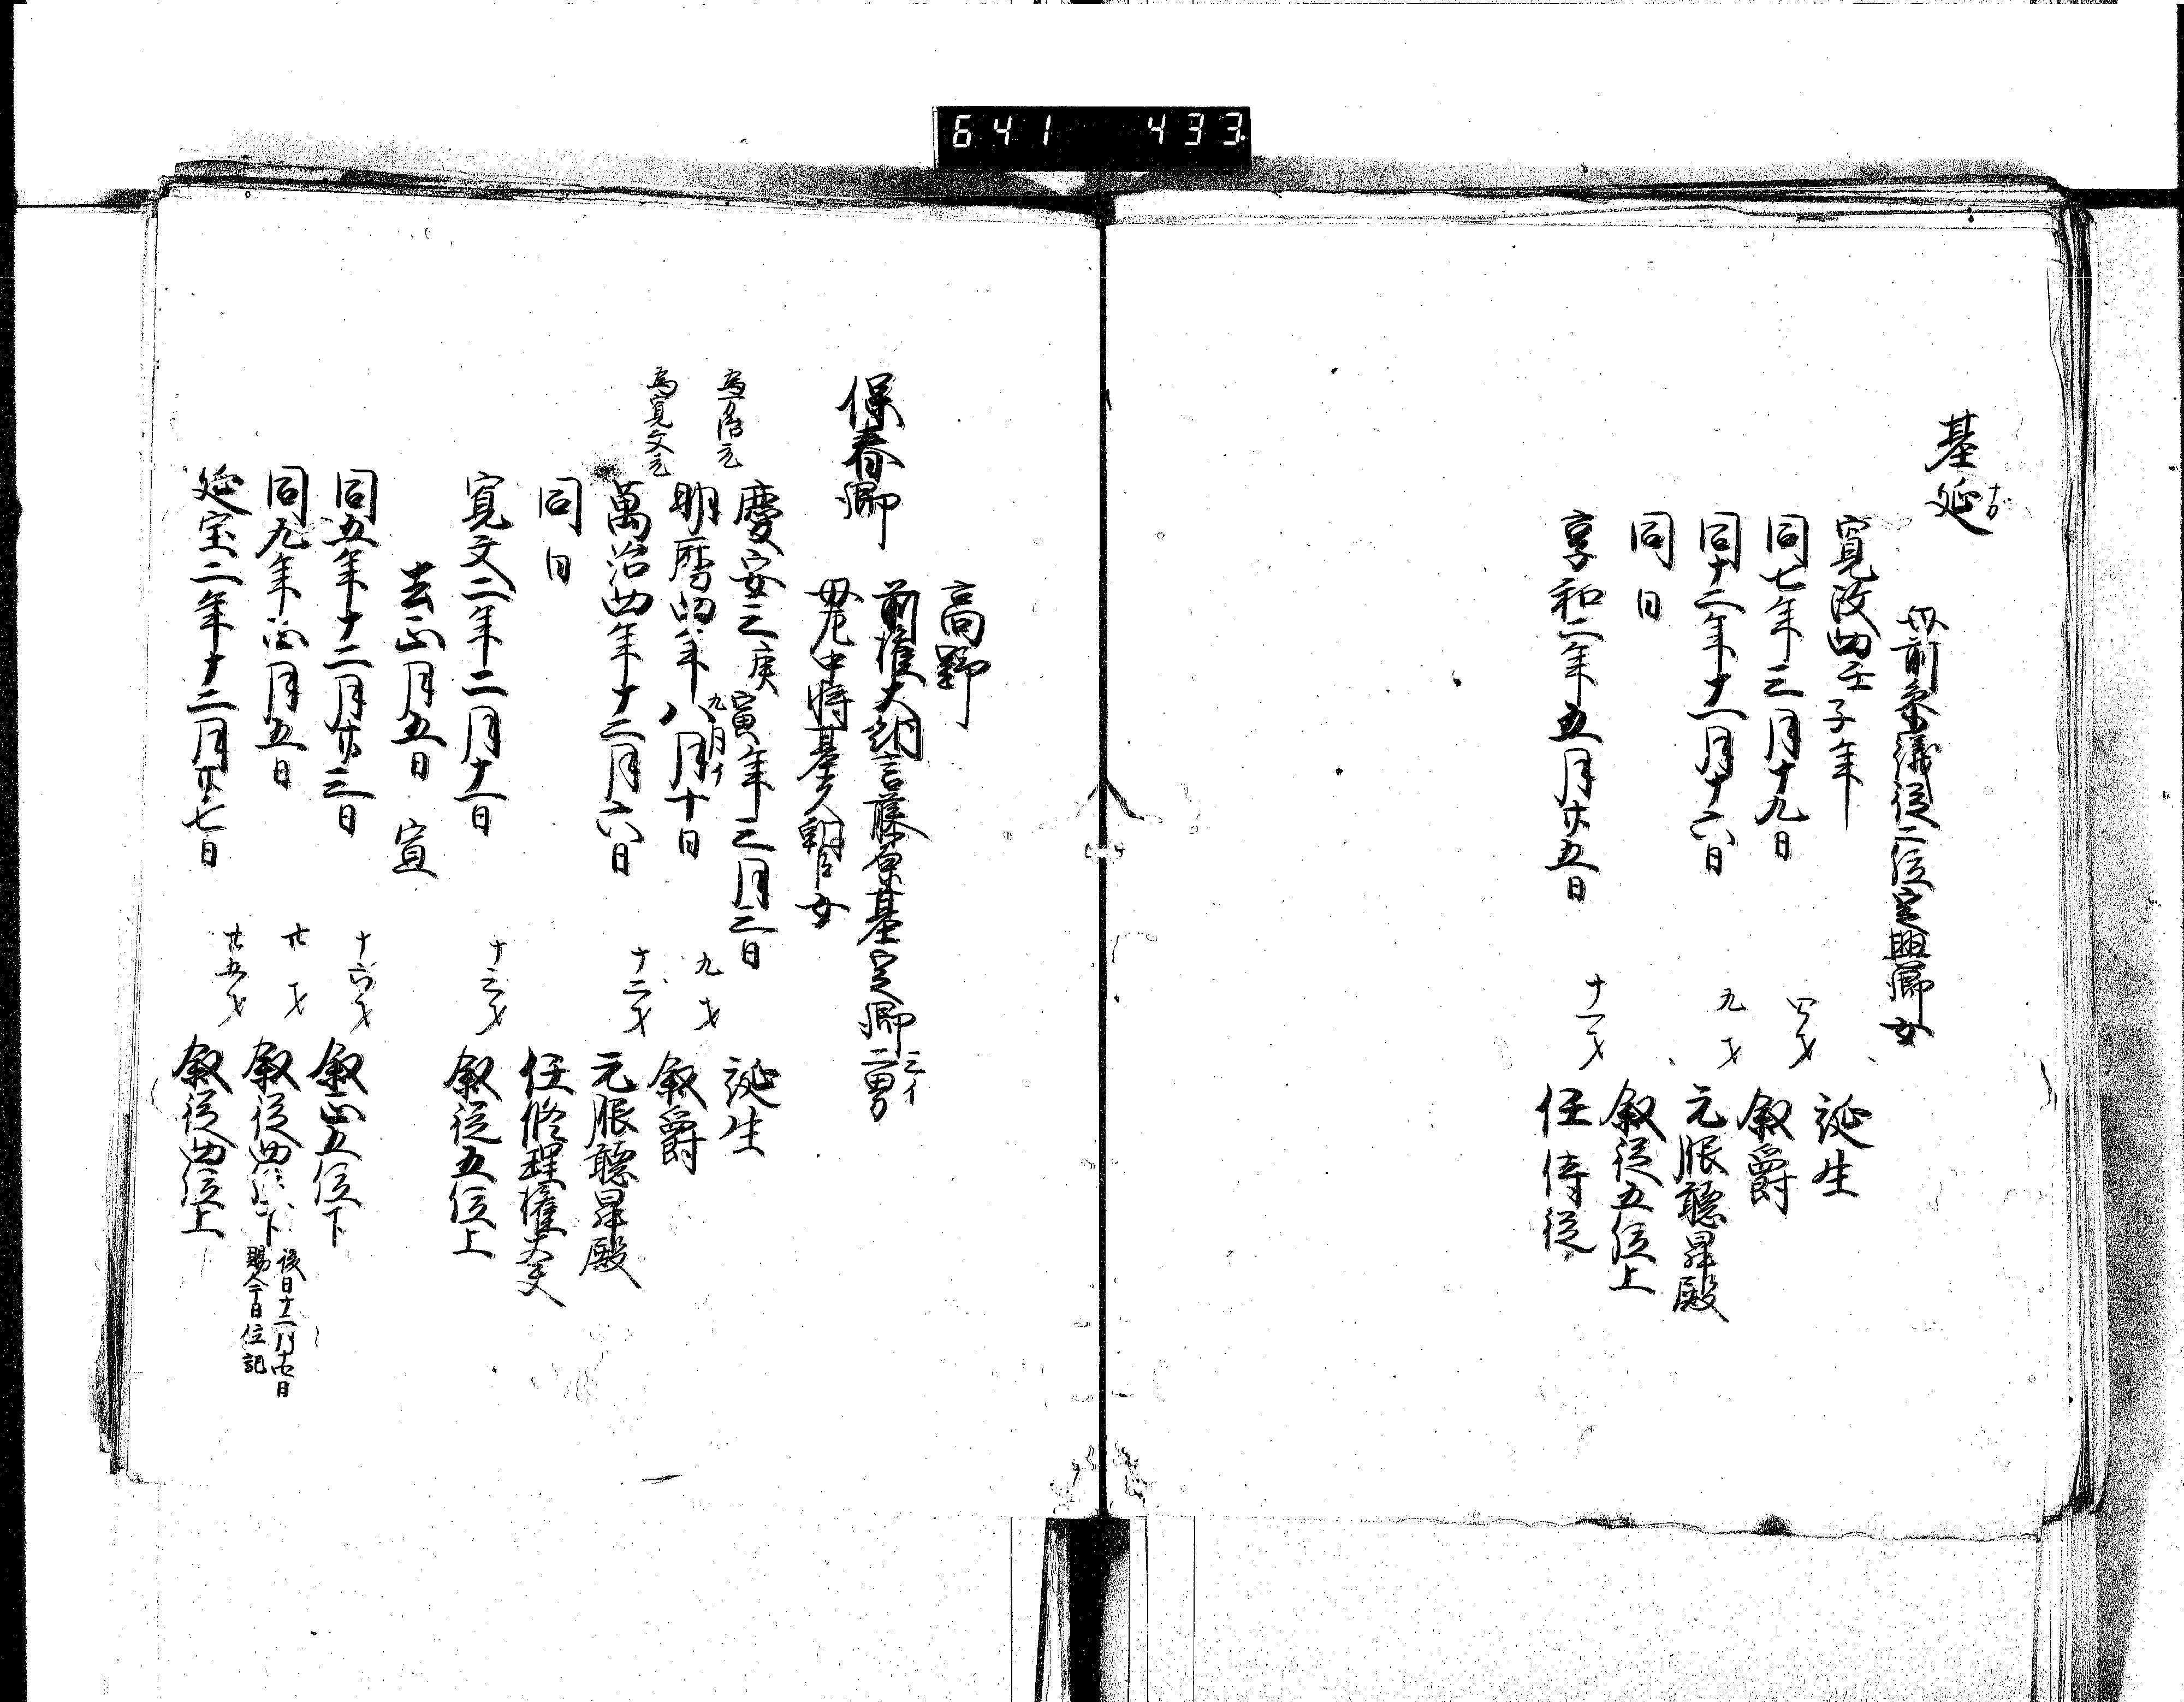 641 433
基延
母前参議従二位定興卿女
寛政四壬子年 誕生
同七年三月十九日 四才 叙爵
同十二年十一月十六日 九才 元服聴昇殿
同日 叙従五位上
享和二年五月廿五日 十一才 任侍従
高野
保春卿 前権大納言藤原基定卿二男 三イ
母左中将基久朝臣女
慶安三庚寅年三月三日 誕生
為万治元
明暦四年八月十日 九才 叙爵
九月イ
為寛文元
萬治四年十二月六日 十二才 元服聴昇殿
同日 任修理権大夫
寛文二年二月十一日 十三才 叙従五位上
去正月五日 宣
同五年十二月廿三日 十六才 叙正五位下
同九年正月五日 廿才 叙従四位下 後日十二月 日
賜今日位記
延宝二年十二月廿七日 廿五才 叙従四位上